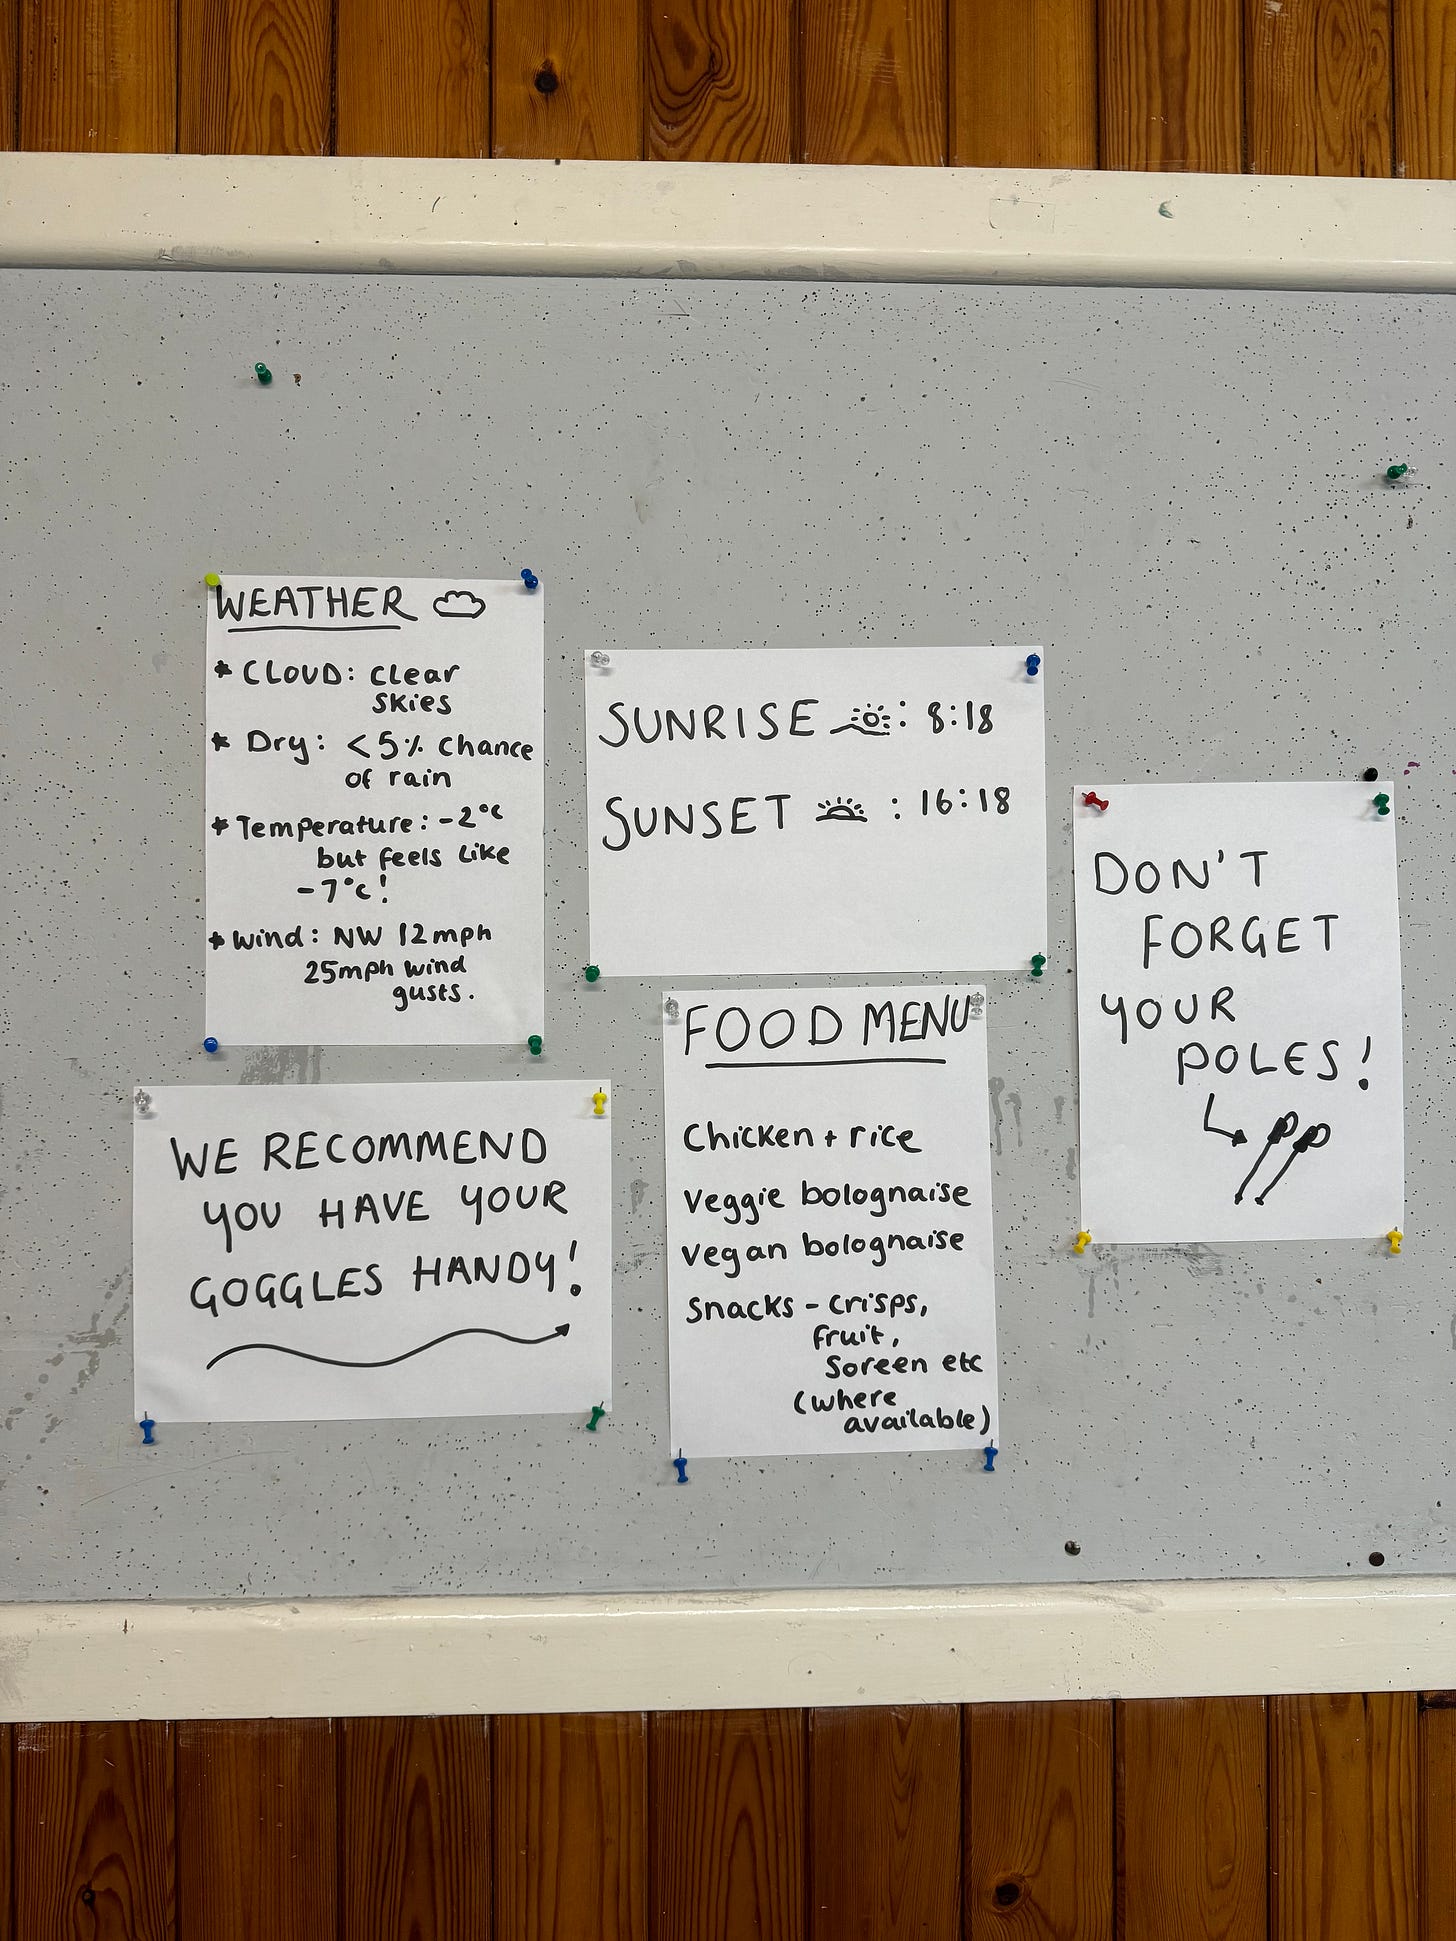 WEATHER
* CLOUD: clear
skies
* Dry: <5% chance
of rain
* Temperature: -2°c
but feels like
-7°c!
* Wind: NW 12mph
25mph wind
gusts.
SUNRISE : 8:18
SUNSET : 16:18
DON'T
FORGET
YOUR
POLES!
WE RECOMMEND
YOU HAVE YOUR
GOGGLES HANDY!
FOOD MENU
Chicken + rice
Veggie bolognaise
Vegan bolognaise
Snacks - crisps,
fruit,
Soreen etc
(where
available)